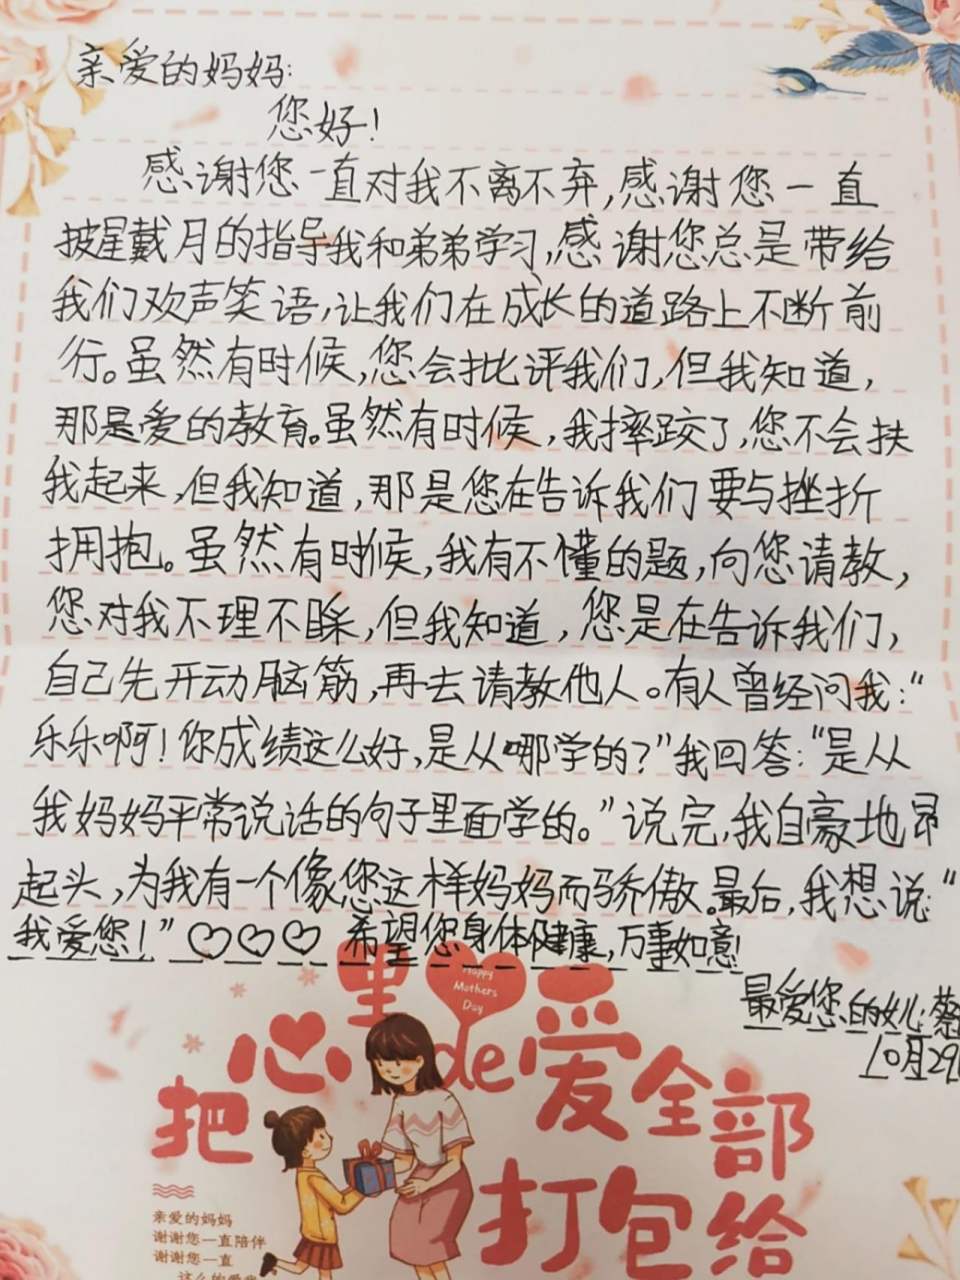 亲爱的妈妈:
您好!
感谢您一直对我不离不弃,感谢您一直
披星戴月的指导我和弟弟学习,感谢您总是带给
我们欢声笑语,让我们在成长的道路上不断前
行。虽然有时候,您会批评我们,但我知道,
那是爱的教育。虽然有时候,我摔跤了,您不会扶
我起来,但我知道,那是您在告诉我们要与挫折
拥抱。虽然有时候,我有不懂的题,向您请教,
您对我不理不睬,但我知道,您是在告诉我们,
自己先开动脑筋,再去请教他人。有人曾经问我:“
乐乐啊!你成绩这么好,是从哪学的?”我回答:“是从
我妈妈平常说话的句子里面学的。”说完,我自豪地昂
起头,为我有一个像您这样妈妈而骄傲。最后,我想说:“
我爱您!”♡♡♡希望您身体健康,万事如意!
最爱您的女儿:蔡
10月29
Happy
Mothers
Day
把心里de爱全部
打包给
亲爱的妈妈
谢谢您一直陪伴
谢谢您一直
这么的爱我